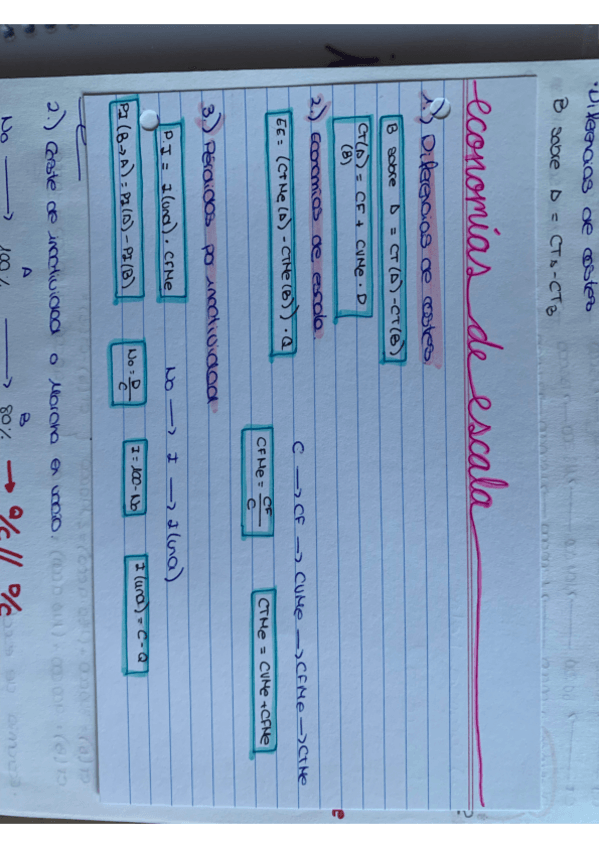 · Diferencias de costes
B sobre D = CTA - CTB
economías de escala
1) Diferencias de costes
B sobre D = CT(D) - CT(B)
CT(D) = CF + CVMe · D
(B)
2) Economías de escala
C → CF → CVMe → CFMe → CTMe
EE = (CTMe(D) - CTMe(B)) · Q
CFMe = CF/C
CTMe = CVMe + CFMe
3) Pérdidas por inactividad
No → I → I(una)
PI = I(una) · CFMe
PI(B→A) = PI(D) - PI(B)
No = D/C
I = 100 - No
I(una) = C - Q
2.) Coste de inactividad o Marcha en vacío.
A B
No → 100% → 80% → %C // %C